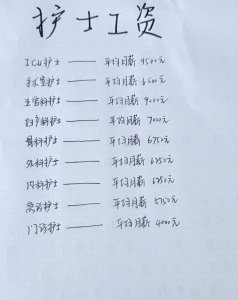 护士工资
ICU护士 —— 平均月薪 9500元
手术室护士 —— 平均月薪 8500元
五官科护士 —— 平均月薪 9000元
妇产科护士 —— 平均月薪 7000元
骨科护士 —— 平均月薪 6750元
外科护士 —— 平均月薪 6250元
内科护士 —— 平均月薪 6250元
急诊护士 —— 平均月薪 5750元
门诊护士 —— 平均月薪 4000元